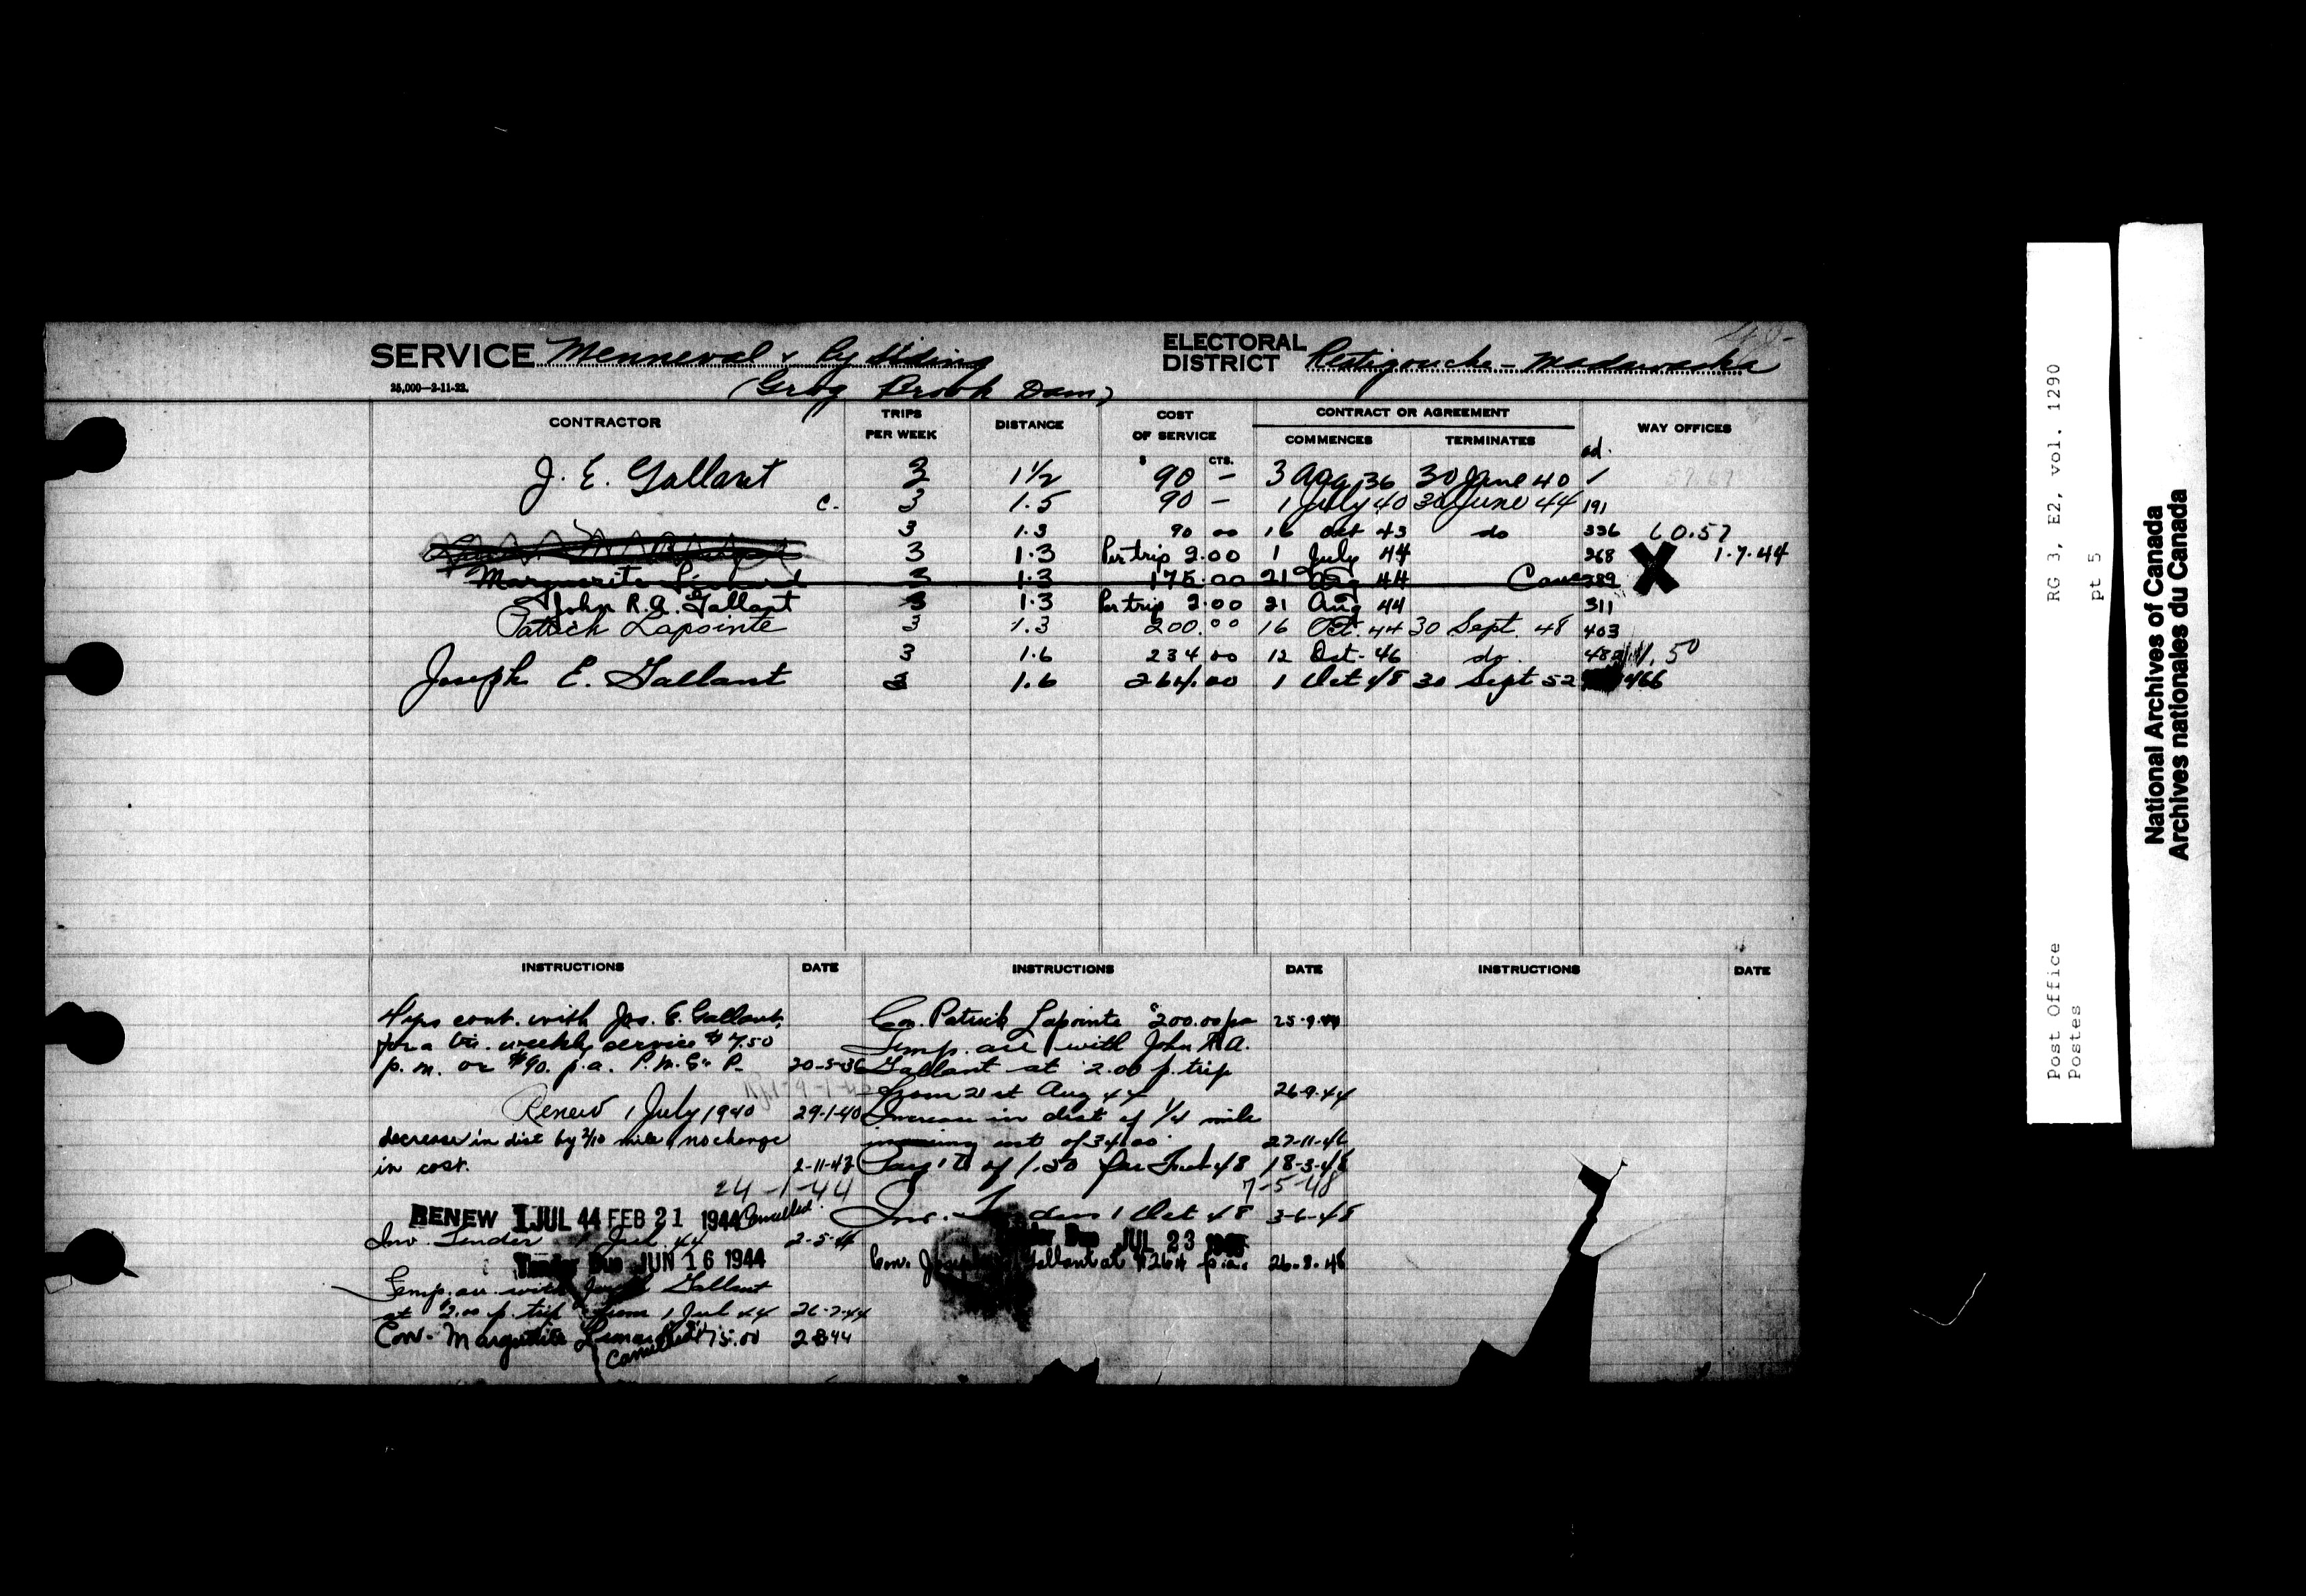 SERVICE Menneval & Ry Siding
ELECTORAL DISTRICT Restigouche - Madawaska
25,000—2-11-32.
(Grog Brook Dam)
CONTRACTOR TRIPS PER WEEK DISTANCE COST OF SERVICE CONTRACT OR AGREEMENT WAY OFFICES
COMMENCES TERMINATES
$ CTS. ad.
J. E. Gallant 3 1 1/2 90 — 3 Aug 36 30 June 40 1
c. 3 1.5 90 — 1 July 40 30 June 44 191
3 1.3 90 00 16 Oct 43 do 336 (0.57
3 1.3 Per trip 2.00 1 July 44 268 X 1.7.44
Marguerite 3 1.3 175.00 21 Aug 44 Canc 289
John R.A. Gallant 3 1.3 Per trip 2.00 21 Aug 44 311
Patrick Lapointe 3 1.3 200.00 16 Oct. 44 30 Sept. 48 403
3 1.6 234 00 12 Oct. 46 do. 50
Joseph E. Gallant 3 1.6 264.00 1 Oct 48 30 Sept 52 466
INSTRUCTIONS DATE INSTRUCTIONS DATE INSTRUCTIONS DATE
4 yrs cont. with Jos. E. Gallant
for a tri. weekly service $7.50
p.m. or $90. p.a. P.M.G. 20-5-36
Renew 1 July 1940 29-1-40
decrease in dist by 2/10 mile, no change
in cost. 2-11-43
24-1-44
RENEW 1 JUL 44 FEB 21 1944 Cancelled
Inv. Tender 1 Jul. 44 2-5-44
Tender Due JUN 16 1944
Temp. arr. with Gallant
at $2.00 p. trip from 1 Jul 44 26-7-44
Con. Marguerite 175.00 2-8-44
Cancelled
Con. Patrick Lapointe $200.00 pa 25-9-44
Temp. arr with John R.A.
Gallant at 2.00 p. trip
from 21st Aug 44 26-9-44
Increase in dist of 1/4 mile
cost of 34.00 27-11-46
18-3-48
7-5-48
Inv. 1 Oct 48 3-6-48
Due JUL 23
Con. Gallant at $264 p.a. 26-8-48
RG 3, E2, vol. 1290
pt 5
Post Office
Postes
National Archives of Canada
Archives nationales du Canada